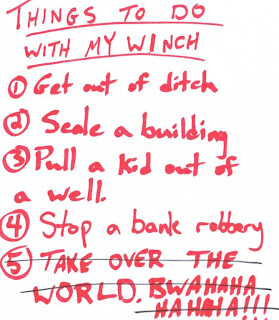 THINGS TO DO
WITH MY WINCH
① Get out of ditch
② Scale a building
③ Pull a kid out of
a well.
④ Stop a bank robbery
⑤ TAKE OVER THE
WORLD. BWAHAHA
HAHAHA!!!